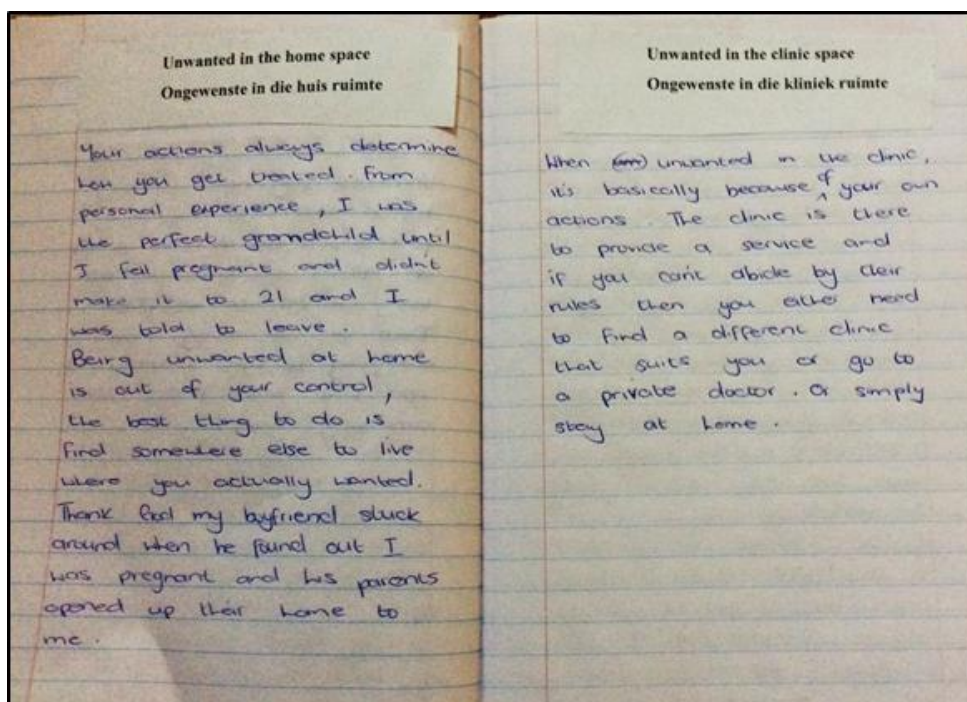 Unwanted in the home space
Ongewenste in die huis ruimte
Your actions always determine
how you get treated. From
personal experience, I was
the perfect grandchild until
I fell pregnant and didn't
make it to 21 and I
was told to leave.
Being unwanted at home
is out of your control,
the best thing to do is
find somewhere else to live
where you actually wanted.
Thank God my boyfriend stuck
around when he found out I
was pregnant and his parents
opened up their home to
me.
Unwanted in the clinic space
Ongewenste in die kliniek ruimte
When unwanted in the clinic,
it's basically because of your own
actions. The clinic is there
to provide a service and
if you can't abide by their
rules then you either need
to find a different clinic
that suits you or go to
a private doctor. Or simply
stay at home.